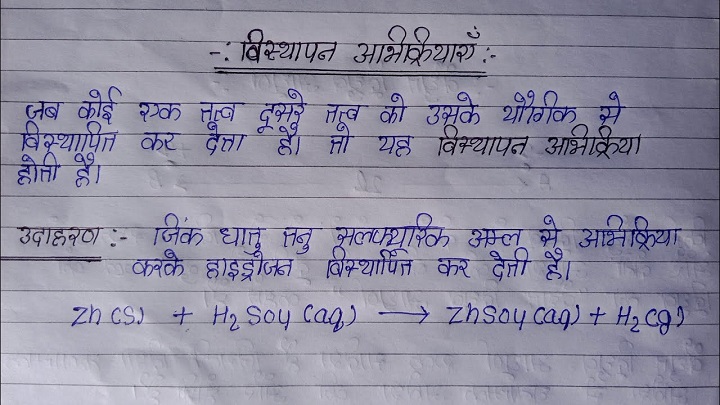 -: विस्थापन अभिक्रियाएँ :-
जब कोई एक तत्व दूसरे तत्व को उसके यौगिक से
विस्थापित कर देता है। तो यह विस्थापन अभिक्रिया
होती है।
उदाहरण :- जिंक धातु तनु सलफ्यूरिक अम्ल से अभिक्रिया
करके हाइड्रोजन विस्थापित कर देती है।
Zn(s) + H₂SO4(aq) → ZnSO4(aq) + H₂(g)